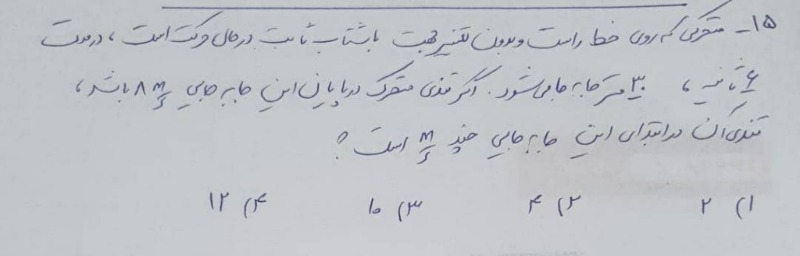 ۱۵- متحرکی که روی خط راست و بدون تغییر جهت با شتاب ثابت در حال حرکت است، در مدت
۶ ثانیه، ۳۰ متر جابه جا می‌شود. اگر تندی متحرک در پایان این جابه جایی ۸ m/s باشد،
تندی آن در ابتدای این جابه جایی چند m/s است؟
۱) ۲ ۲) ۴ ۳) ۱۰ ۴) ۱۲